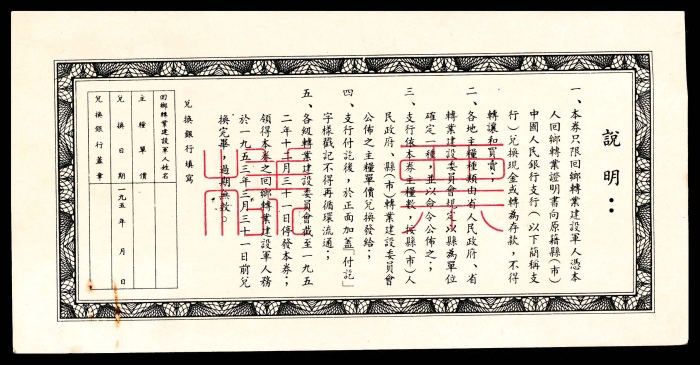 說明：
一、本券只限回鄉轉業建設軍人憑本
人回鄉轉業證明書向原籍縣（市）
中國人民銀行支行（以下簡稱支
行）兌換現金或轉為存款，不得
轉讓和買賣；
二、各地主糧種類由省人民政府、省
轉業建設委員會規定以縣為單位
確定一種，並以命令公佈之；
三、支行依本券主糧數，按縣（市）人
民政府 縣（市）轉業建設委員會
公佈之主糧單價兌換發給；
四、支行付訖後，於正面加蓋「付訖」
字樣戳記不得再循環流通；
五、各級轉業建設委員會截至一九五
二年十二月三十一日停發本券；
領得本券之回鄉轉業建設軍人務
於一九五三年三月三十一日前兌
換完畢，過期無效。
兌換銀行填寫
回鄉轉業建設軍人姓名
主糧單價
兌換日期 一九五 年 月 日
兌換銀行蓋章
票樣